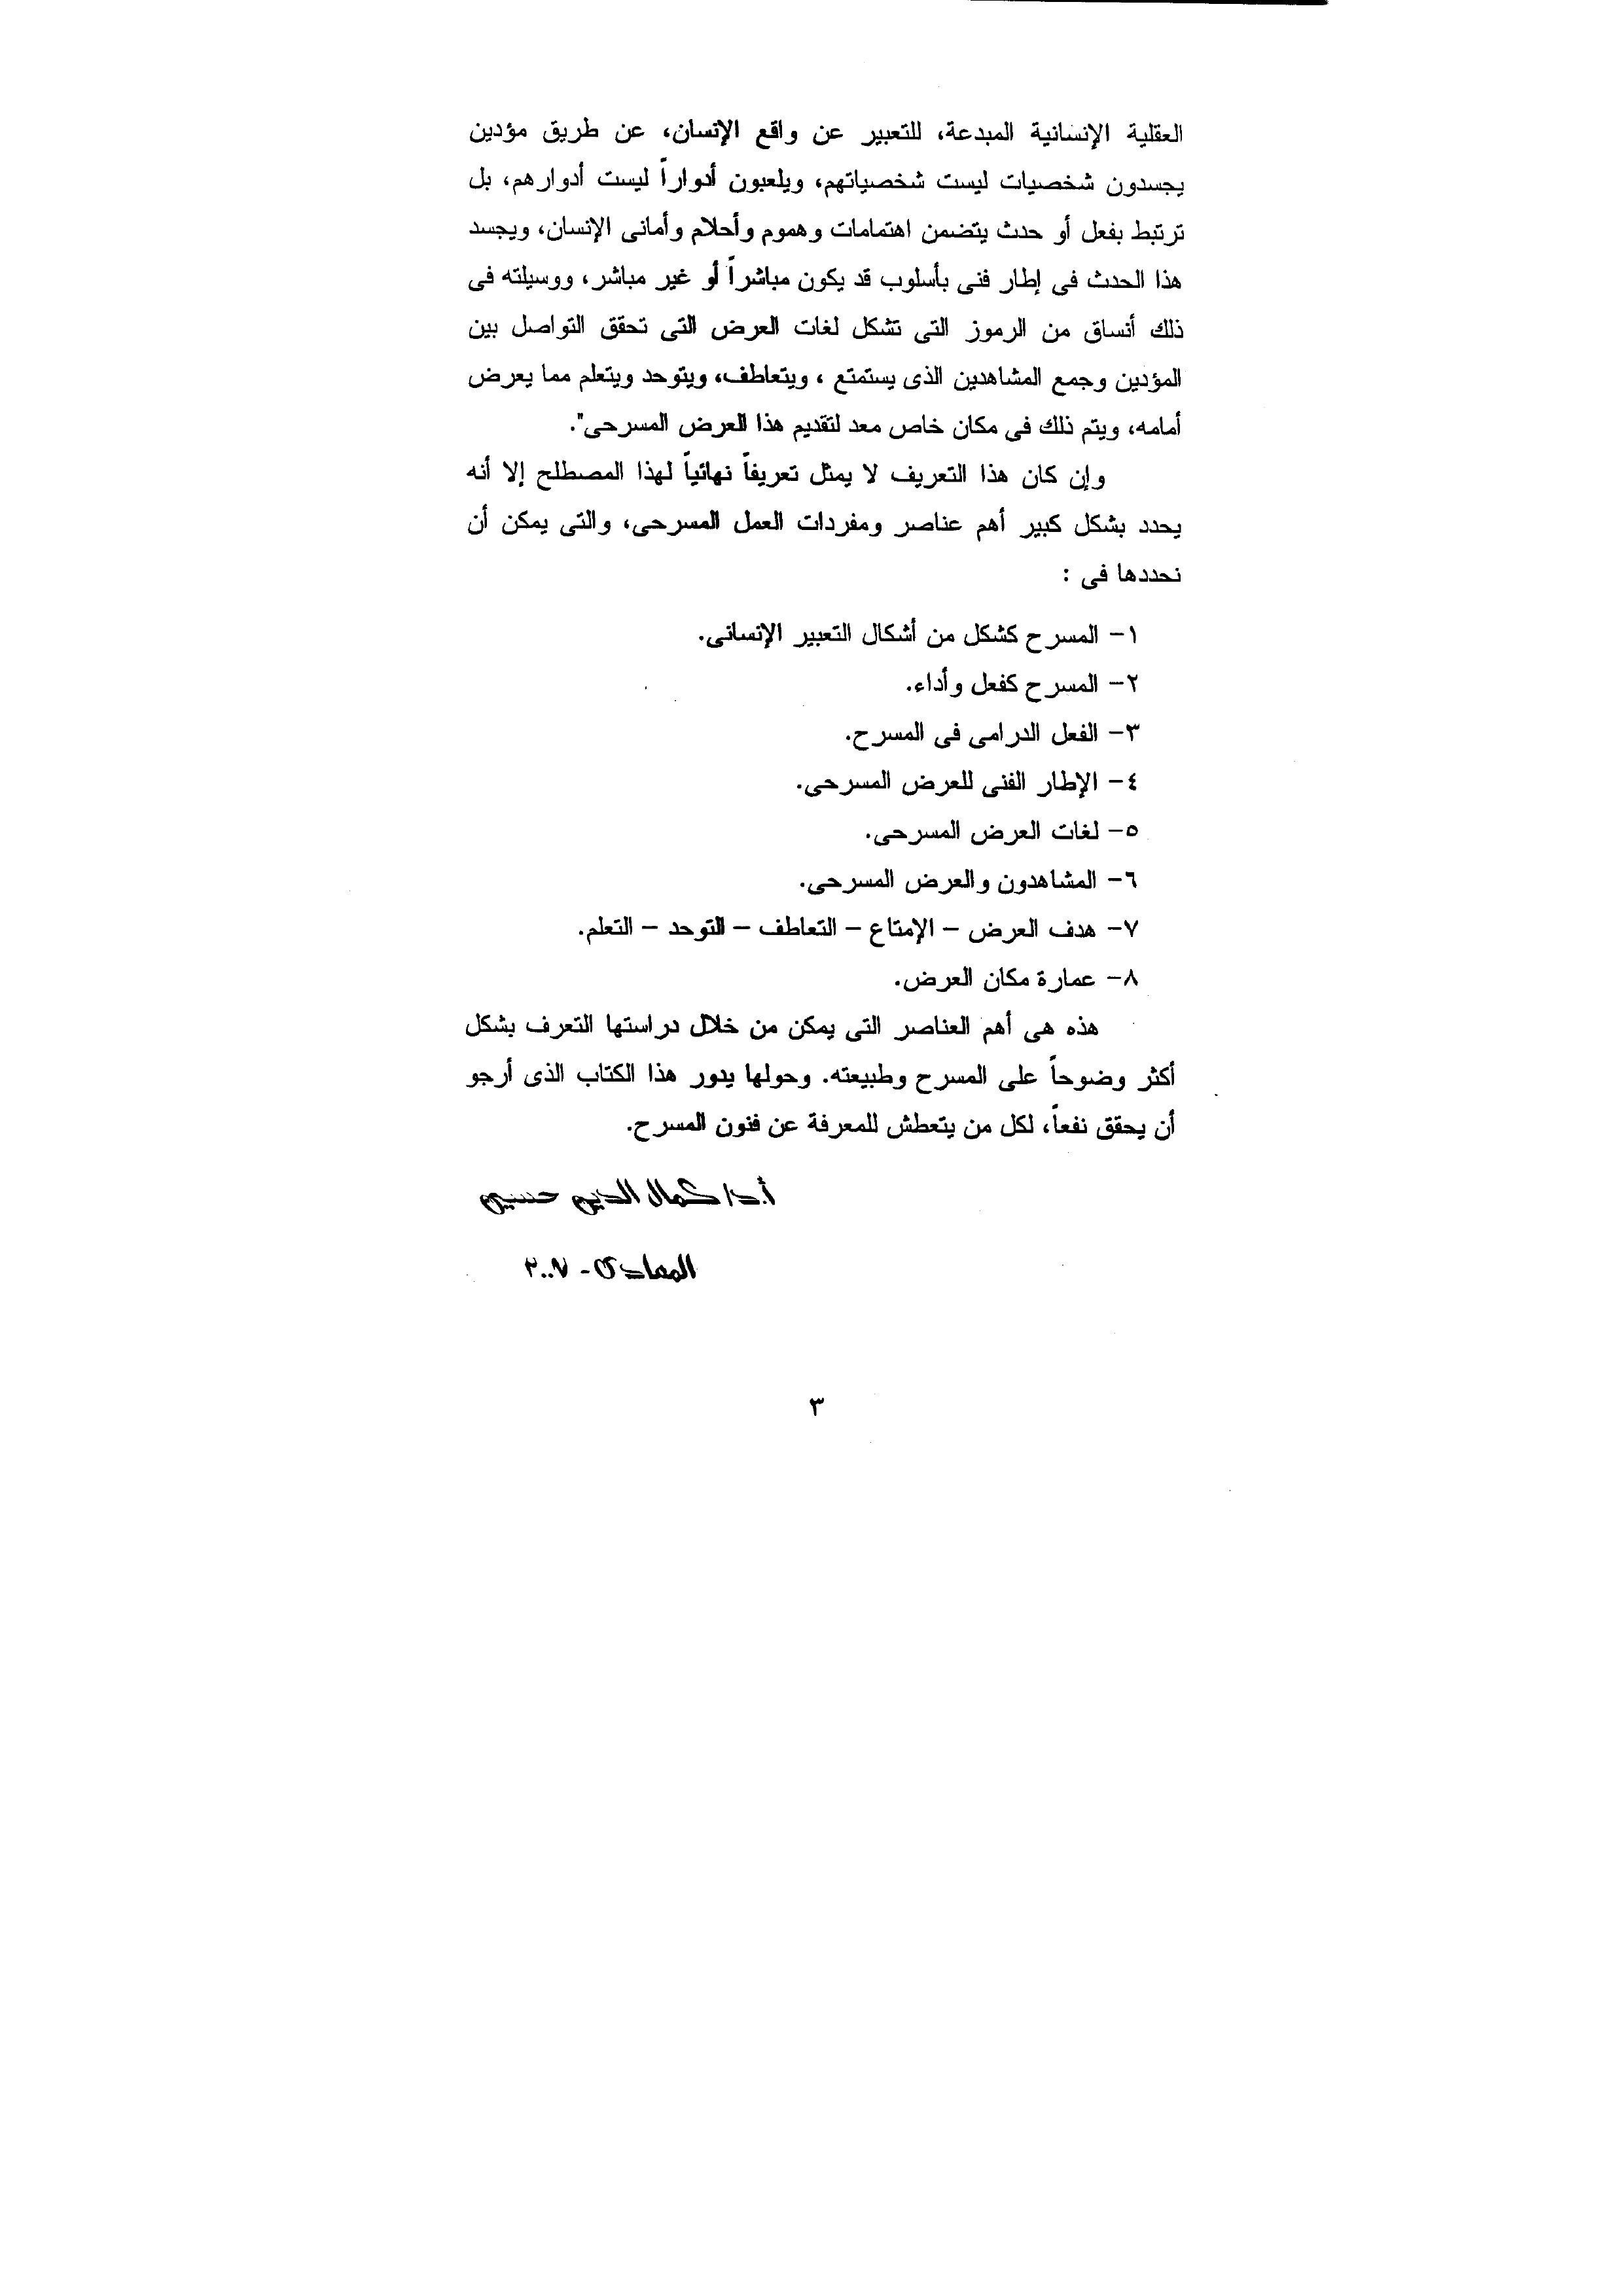 العقلية الإنسانية المبدعة، للتعبير عن واقع الإنسان، عن طريق مؤدين
يجسدون شخصيات ليست شخصياتهم، ويلعبون أدواراً ليست أدوارهم، بل
ترتبط بفعل أو حدث يتضمن اهتمامات وهموم وأحلام وأمانى الإنسان، ويجسد
هذا الحدث فى إطار فنى بأسلوب قد يكون مباشراً أو غير مباشر، ووسيلته فى
ذلك أنساق من الرموز التى تشكل لغات العرض التى تحقق التواصل بين
المؤدين وجمع المشاهدين الذى يستمتع ، ويتعاطف، ويتوحد ويتعلم مما يعرض
أمامه، ويتم ذلك فى مكان خاص معد لتقديم هذا العرض المسرحى".
وإن كان هذا التعريف لا يمثل تعريفاً نهائياً لهذا المصطلح إلا أنه
يحدد بشكل كبير أهم عناصر ومفردات العمل المسرحى، والتى يمكن أن
نحددها فى :
١- المسرح كشكل من أشكال التعبير الإنسانى.
٢- المسرح كفعل وأداء.
٣- الفعل الدرامى فى المسرح.
٤- الإطار الفنى للعرض المسرحى.
٥- لغات العرض المسرحى.
٦- المشاهدون والعرض المسرحى.
٧- هدف العرض – الإمتاع – التعاطف – التوحد – التعلم.
٨- عمارة مكان العرض.
هذه هى أهم العناصر التى يمكن من خلال دراستها التعرف بشكل
أكثر وضوحاً على المسرح وطبيعته. وحولها يدور هذا الكتاب الذى أرجو
أن يحقق نفعاً، لكل من يتعطش للمعرفة عن فنون المسرح.
أ.د/ كمال الدين حسين
المعادى - ٢٠٠٧
٣